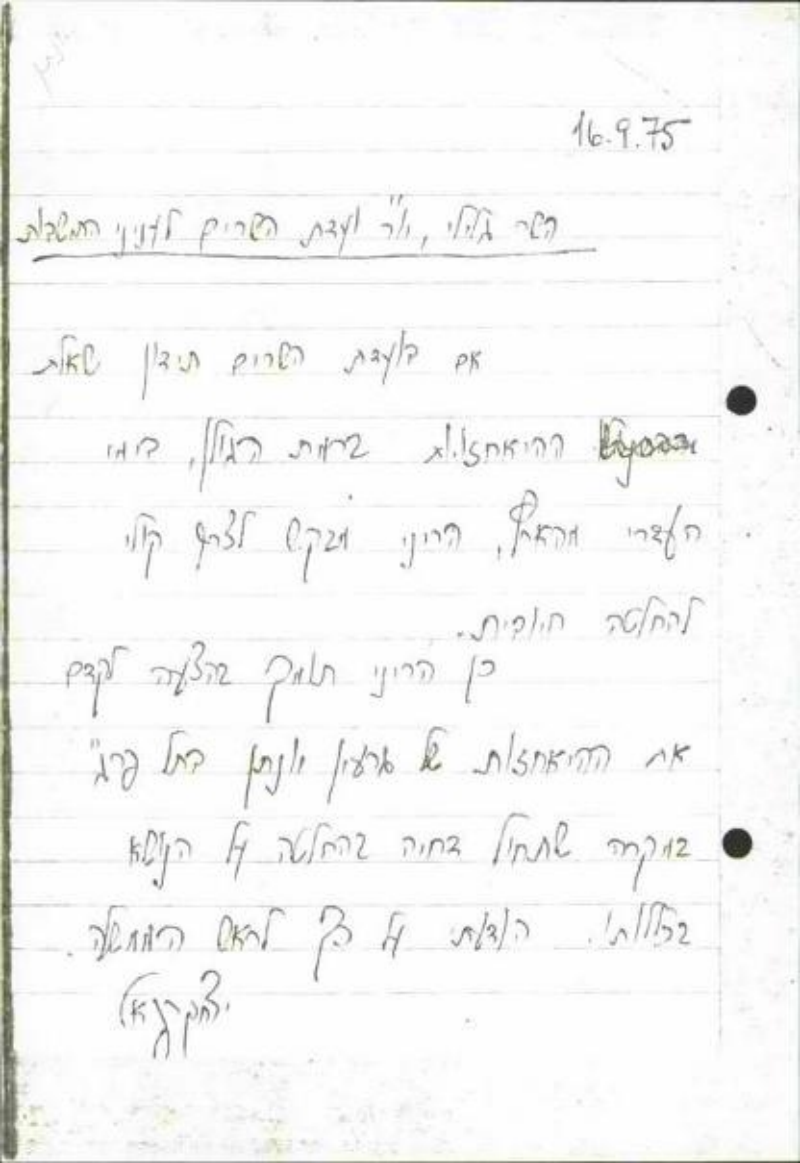 16.9.75
השר גלילי, יו"ר ועדת השרים לעניני התישבות
אם בועדת השרים תידון שאלת
ההיאחזות ברמת הגולן, בימי
העדרי מהארץ, הריני מבקש לצרף קולי
להחלטה חיובית.
כן הריני תומך בהצעה לקדם
את ההיאחזות של גרעין יונתן בתל פרג'
במקרה שתחול דחיה בהחלטה על הנושא
בכללותו. הודעתי על כך לראש הממשלה.
יצחק רפאל